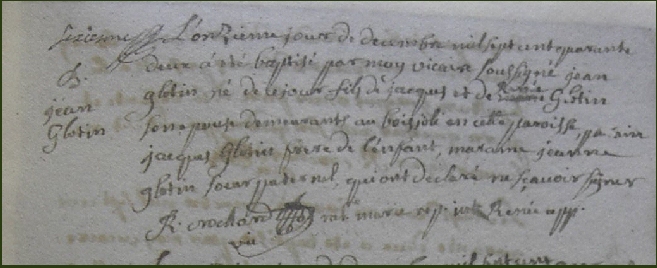 L'onzieme jour de decembre mil sept cent quarante
B.
deux a été baptisé par moy vicaire soussigné jean
jean
glotin né de ce jour fils de jacques et de Renée Glotin
Glotin
son epouse demeurants au boisjoli en cette paroisse, parain
jacques Glotin frere de l'enfant, maraine jeanne
glotin soeur paternel, qui ont declaré ne sçavoir signer
R. crochard rat. app. Renée app.